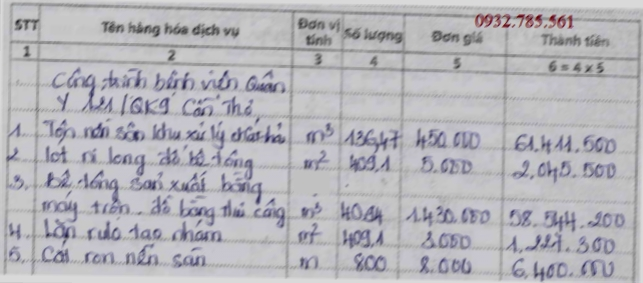 0932.785.561
STT Tên hàng hóa dịch vụ Đơn vị tính Số lượng Đơn giá Thành tiền
1 2 3 4 5 6 = 4 x 5
Công trình bệnh viện Quân
Y 121/QK9 Cần Thơ
1. Tôn nền sân khu xử lý chất thải m³ 136,47 450.000 61.411.500
2. lót ni long đổ bê tông m² 409,1 5.000 2,045.500
3. Bê tông sản xuất bằng
máy trộn. đổ bằng thủ công m³ 40.94 1430.000 58.544.200
4. Lăn rulo tạo nhám m² 409,1 3.000 1,227.300
5. Cắt ron nền sân m 800 8.000 6,400.000